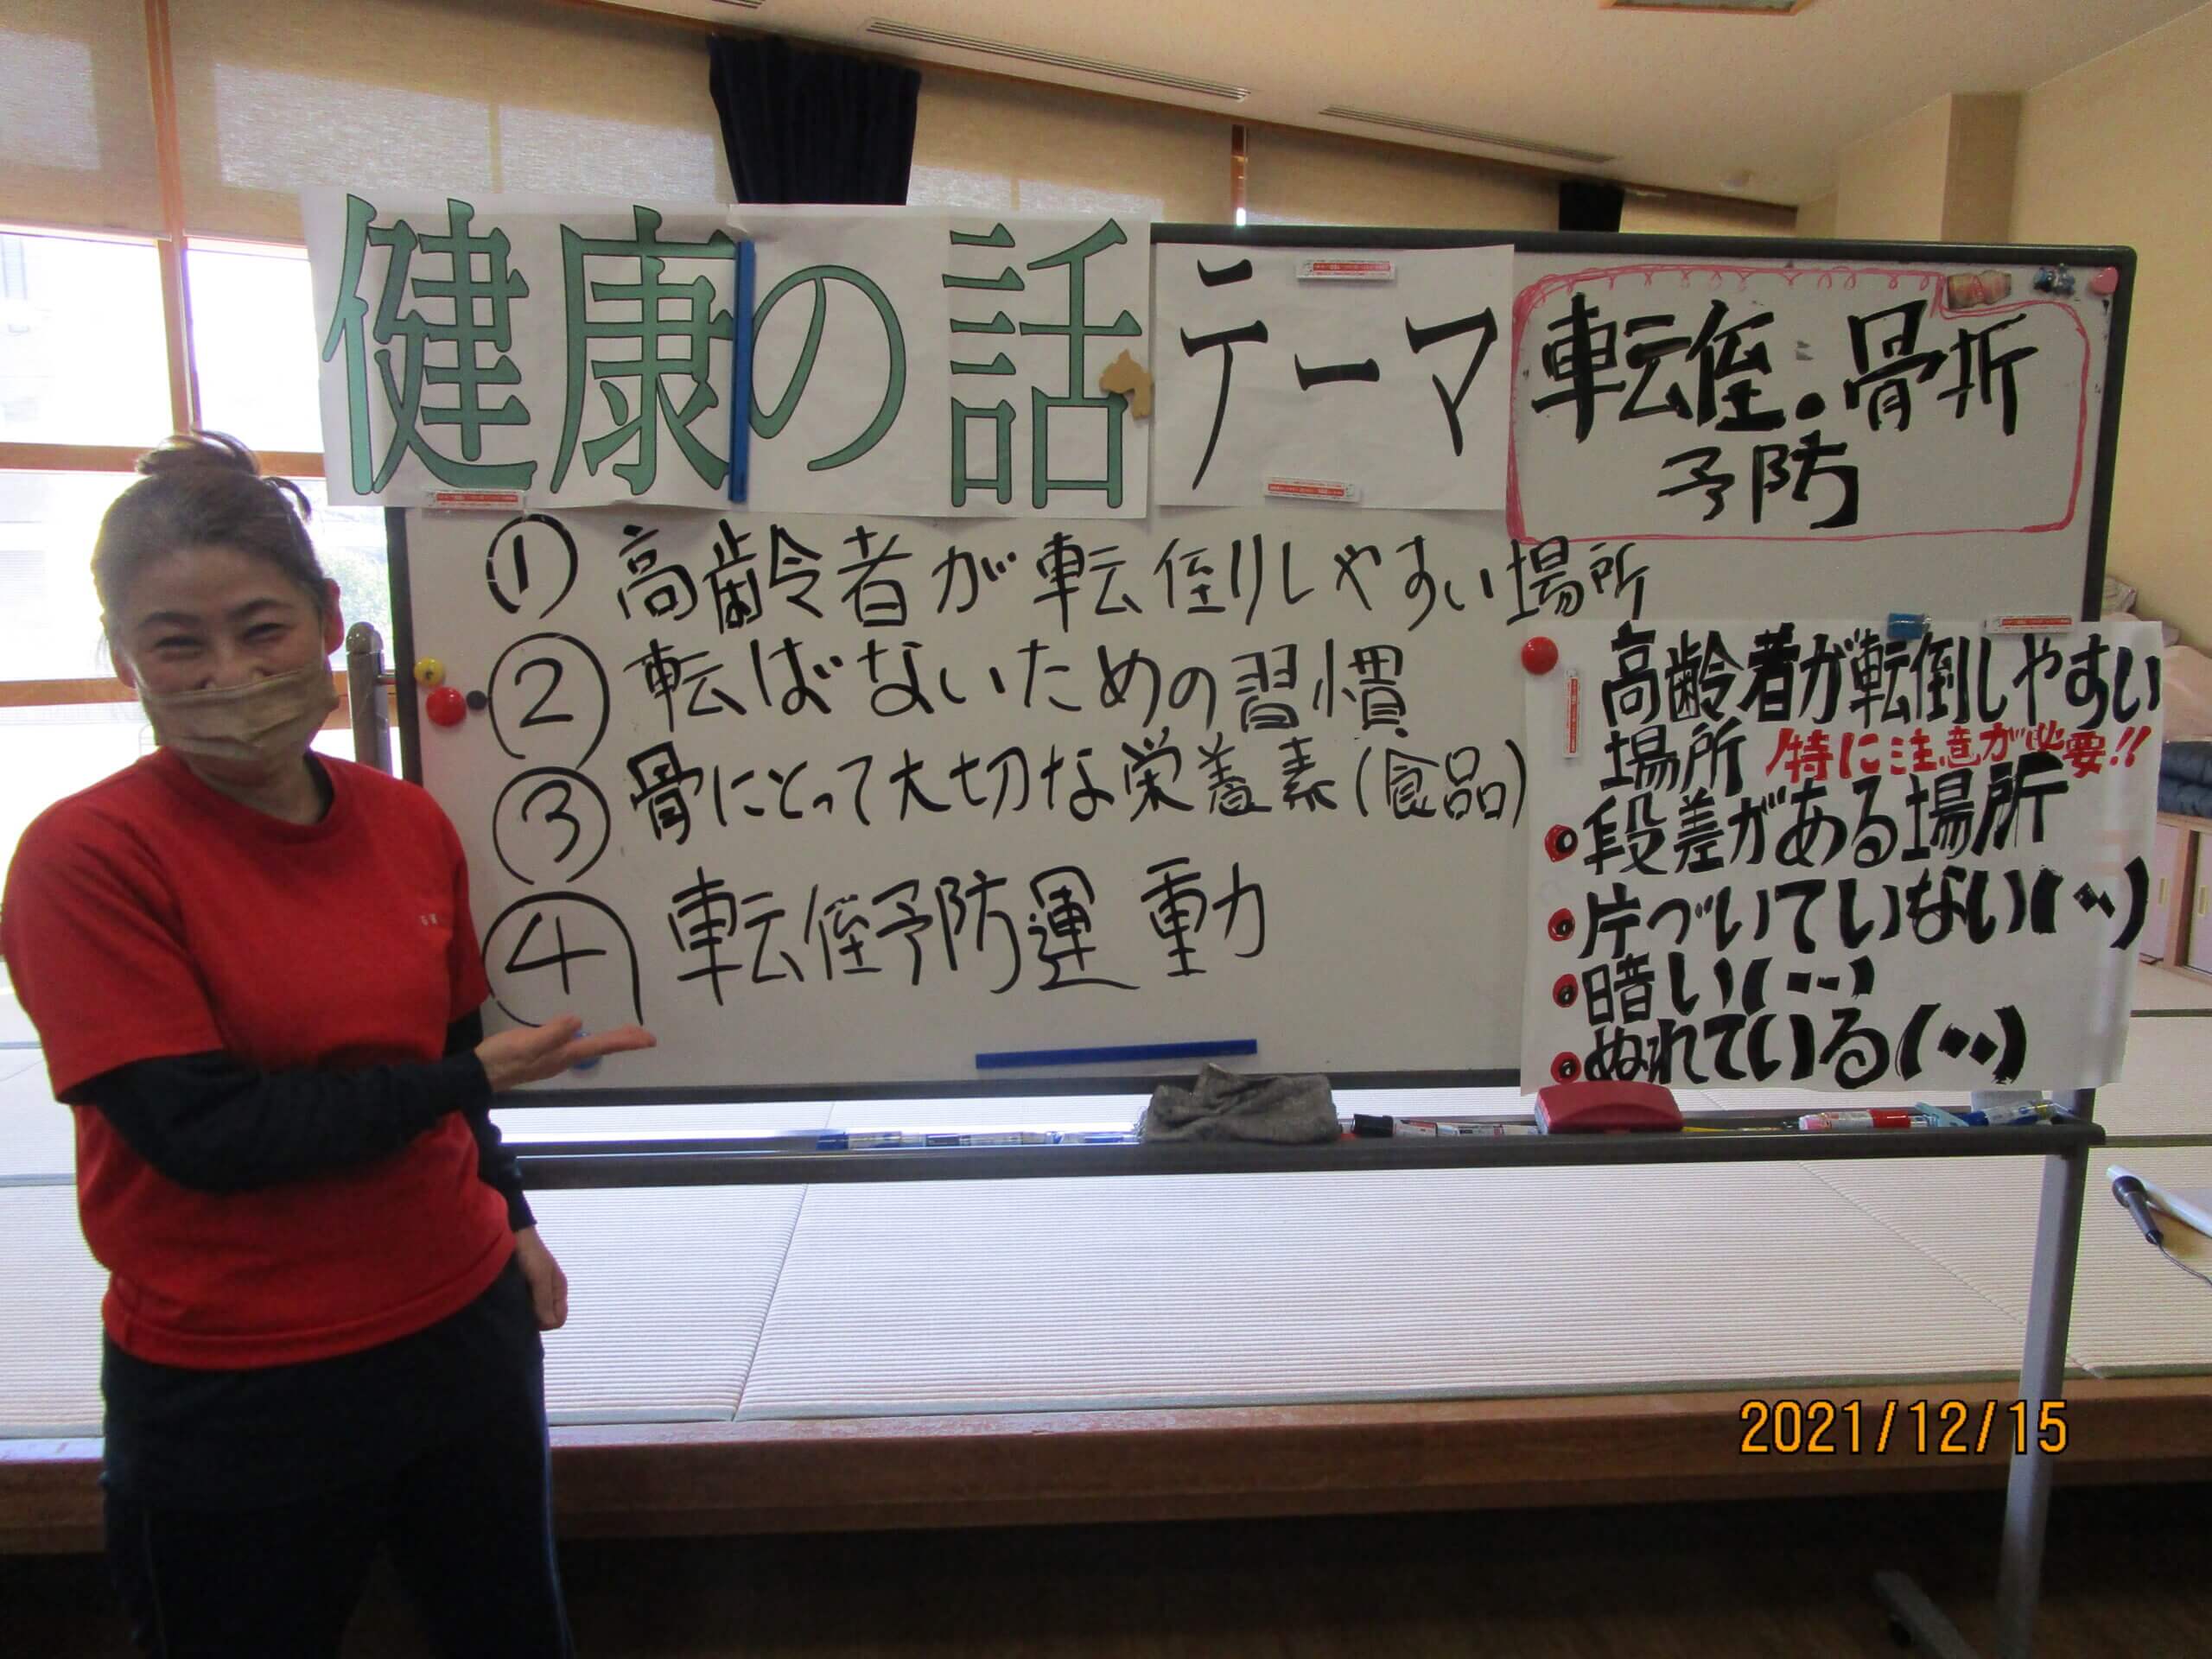 健康の話
テーマ
転倒・骨折
予防
① 高齢者が転倒りしやすい場所
② 転ばないための習慣
③ 骨にとって大切な栄養素(食品)
④ 転倒予防運動
高齢者が転倒しやすい
場所 特に注意が必要!!
段差がある場所
片づいていない(〃)
暗い(〃)
ぬれている(〃)
2021/12/15